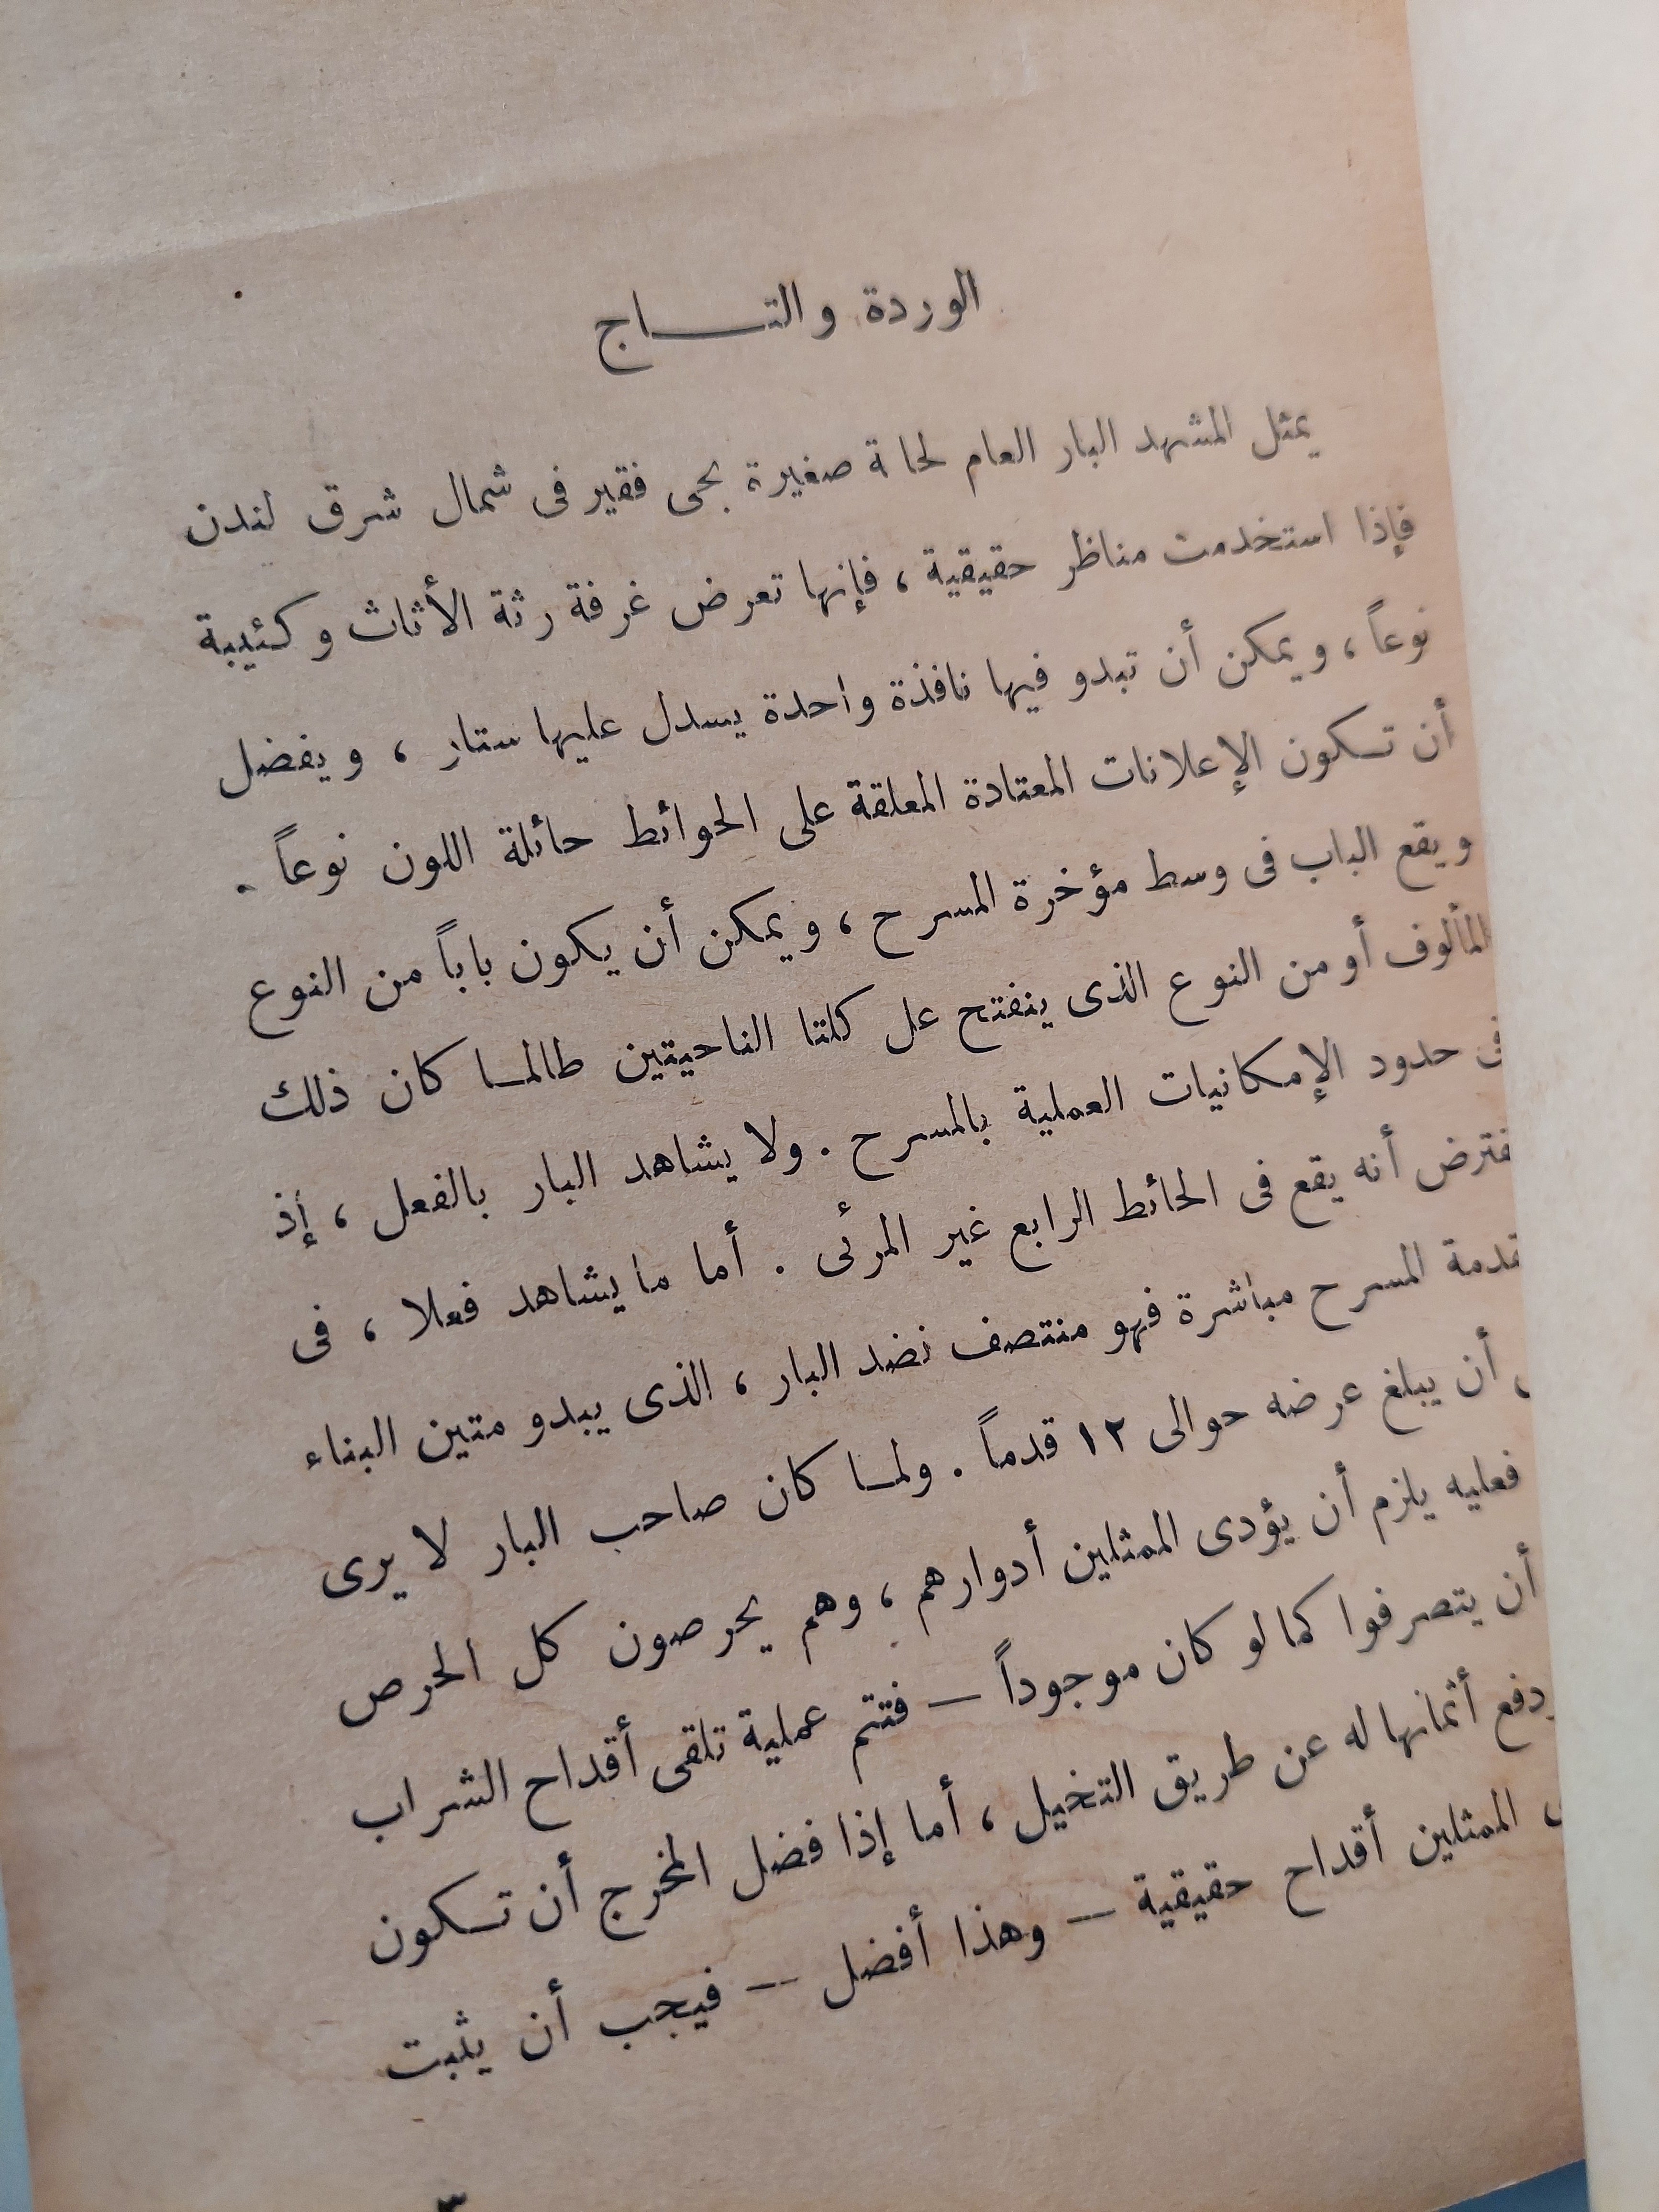 الوردة والتـــاج
يمثل المشهد البار العام لحا ة صغيرة بحى فقير فى شمال شرق لندن
فإذا استخدمت مناظر حقيقية ، فإنها تعرض غرفة رثة الأثاث وكئيبة
نوعاً ، ويمكن أن تبدو فيها نافذة واحدة يسدل عليها ستار ، ويفضل
أن تكون الإعلانات المعتادة المعلقة على الحوائط حائلة اللون نوعاً .
ويقع الباب فى وسط مؤخرة المسرح ، ويمكن أن يكون باباً من النوع
المألوف أو من النوع الذى ينفتح عل كلتا الناحيتين طالمـا كان ذلك
فى حدود الإمكانيات العملية بالمسرح . ولا يشاهد البار بالفعل ، إذ
فترض أنه يقع فى الحائط الرابع غير المرئى . أما ما يشاهد فعلا ، فى
قدمة المسرح مباشرة فهو منتصف نضد البار ، الذى يبدو متين البناء
أن يبلغ عرضه حوالى ١٢ قدماً . ولمـا كان صاحب البار لا يرى
فعليه يلزم أن يؤدى الممثلين أدوارهم ، وهم يحرصون كل الحرص
أن يتصرفوا كما لو كان موجوداً – فتتم عملية تلقى أقداح الشراب
دفع أثمانها له عن طريق التخيل ، أما إذا فضل المخرج أن تكون
الممثلين أقداح حقيقية – وهذا أفضل – فيجب أن يثبت